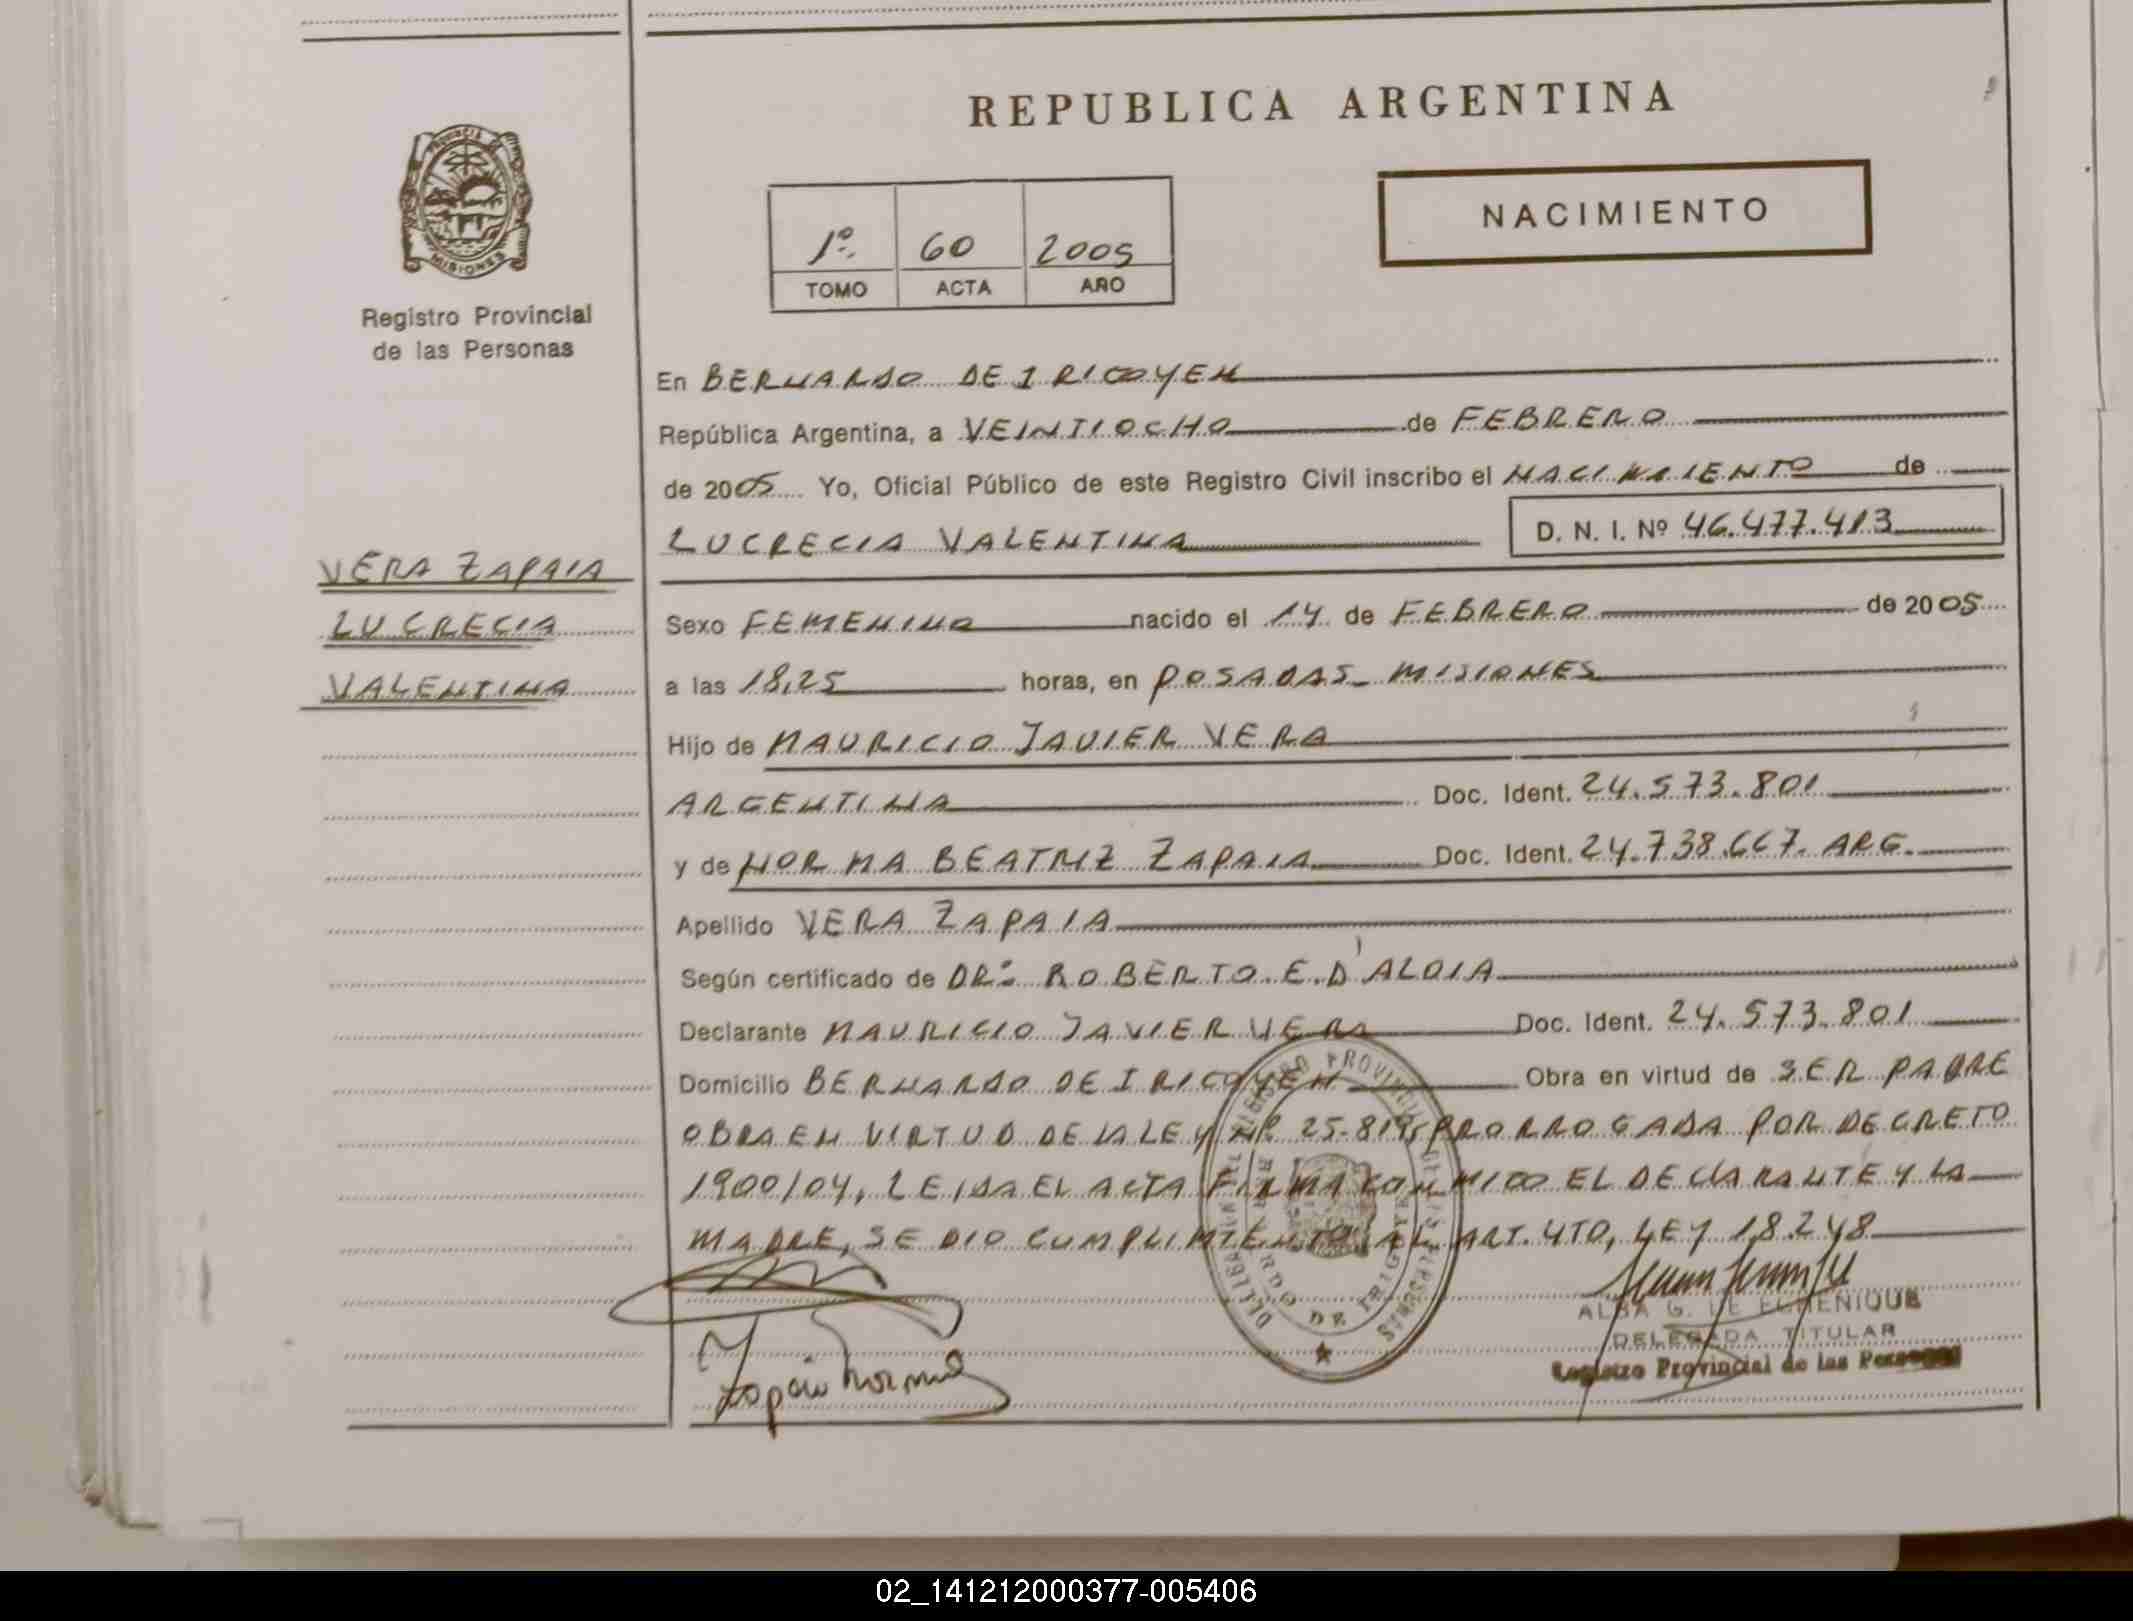 REPUBLICA ARGENTINA
NACIMIENTO
1º. 60 2005
TOMO ACTA AÑO
PROVINCIA
MISIONES
Registro Provincial
de las Personas
VERA ZAPAIA
LUCRECIA
VALENTINA
En BERNARDO DE IRIGOYEN
República Argentina, a VEINTIOCHO de FEBRERO
de 2005 Yo, Oficial Público de este Registro Civil inscribo el NACIMIENTO de
LUCRECIA VALENTINA D. N. I. Nº 46.477.413
Sexo FEMENINO nacido el 14 de FEBRERO de 2005
a las 18,25 horas, en POSADAS - MISIONES
Hijo de MAURICIO JAVIER VERA
ARGENTINA Doc. Ident. 24.573.801
y de NORMA BEATRIZ ZAPAIA Doc. Ident. 24.738.667. ARG.
Apellido VERA ZAPAIA
Según certificado de DR: ROBERTO E. D'ALOIA
Declarante MAURICIO JAVIER VERA Doc. Ident. 24.573.801
Domicilio BERNARDO DE IRIGOYEN Obra en virtud de SER PADRE
OBRA EN VIRTUD DE LA LEY Nº 25-819, PRORROGADA POR DECRETO
1900/04, LEIDA EL ACTA FIRMA CONMIGO EL DECLARANTE Y LA
MADRE, SE DIO CUMPLIMIENTO AL ART. 4TO, LEY 18.248
Zapaia Norma
ALBA G. DE ECHENIQUE
DELEGADA TITULAR
Registro Provincial de las Personas
02_141212000377-005406